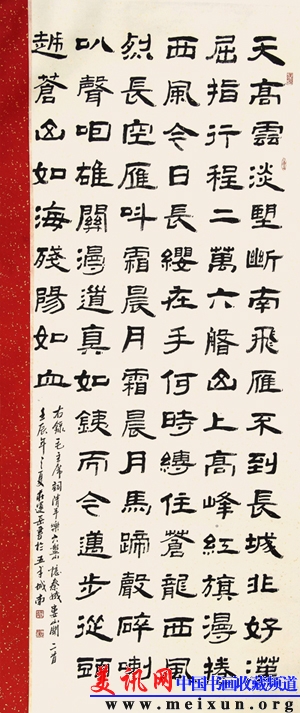 天高雲淡望斷南飛雁不到長城非好漢
屈指行程二萬六盤山上高峰紅旗漫捲
西風今日長纓在手何時縛住蒼龍西風
烈長空雁叫霜晨月霜晨月馬蹄聲碎喇
叭聲咽雄關漫道真如銕而今邁步從頭
越蒼山如海殘陽如血
右錄毛主席詞清平樂六盤山憶秦娥婁山關二首
壬辰年之夏書於五羊城南
美讯网 中国书画收藏频道
www.meixun.net